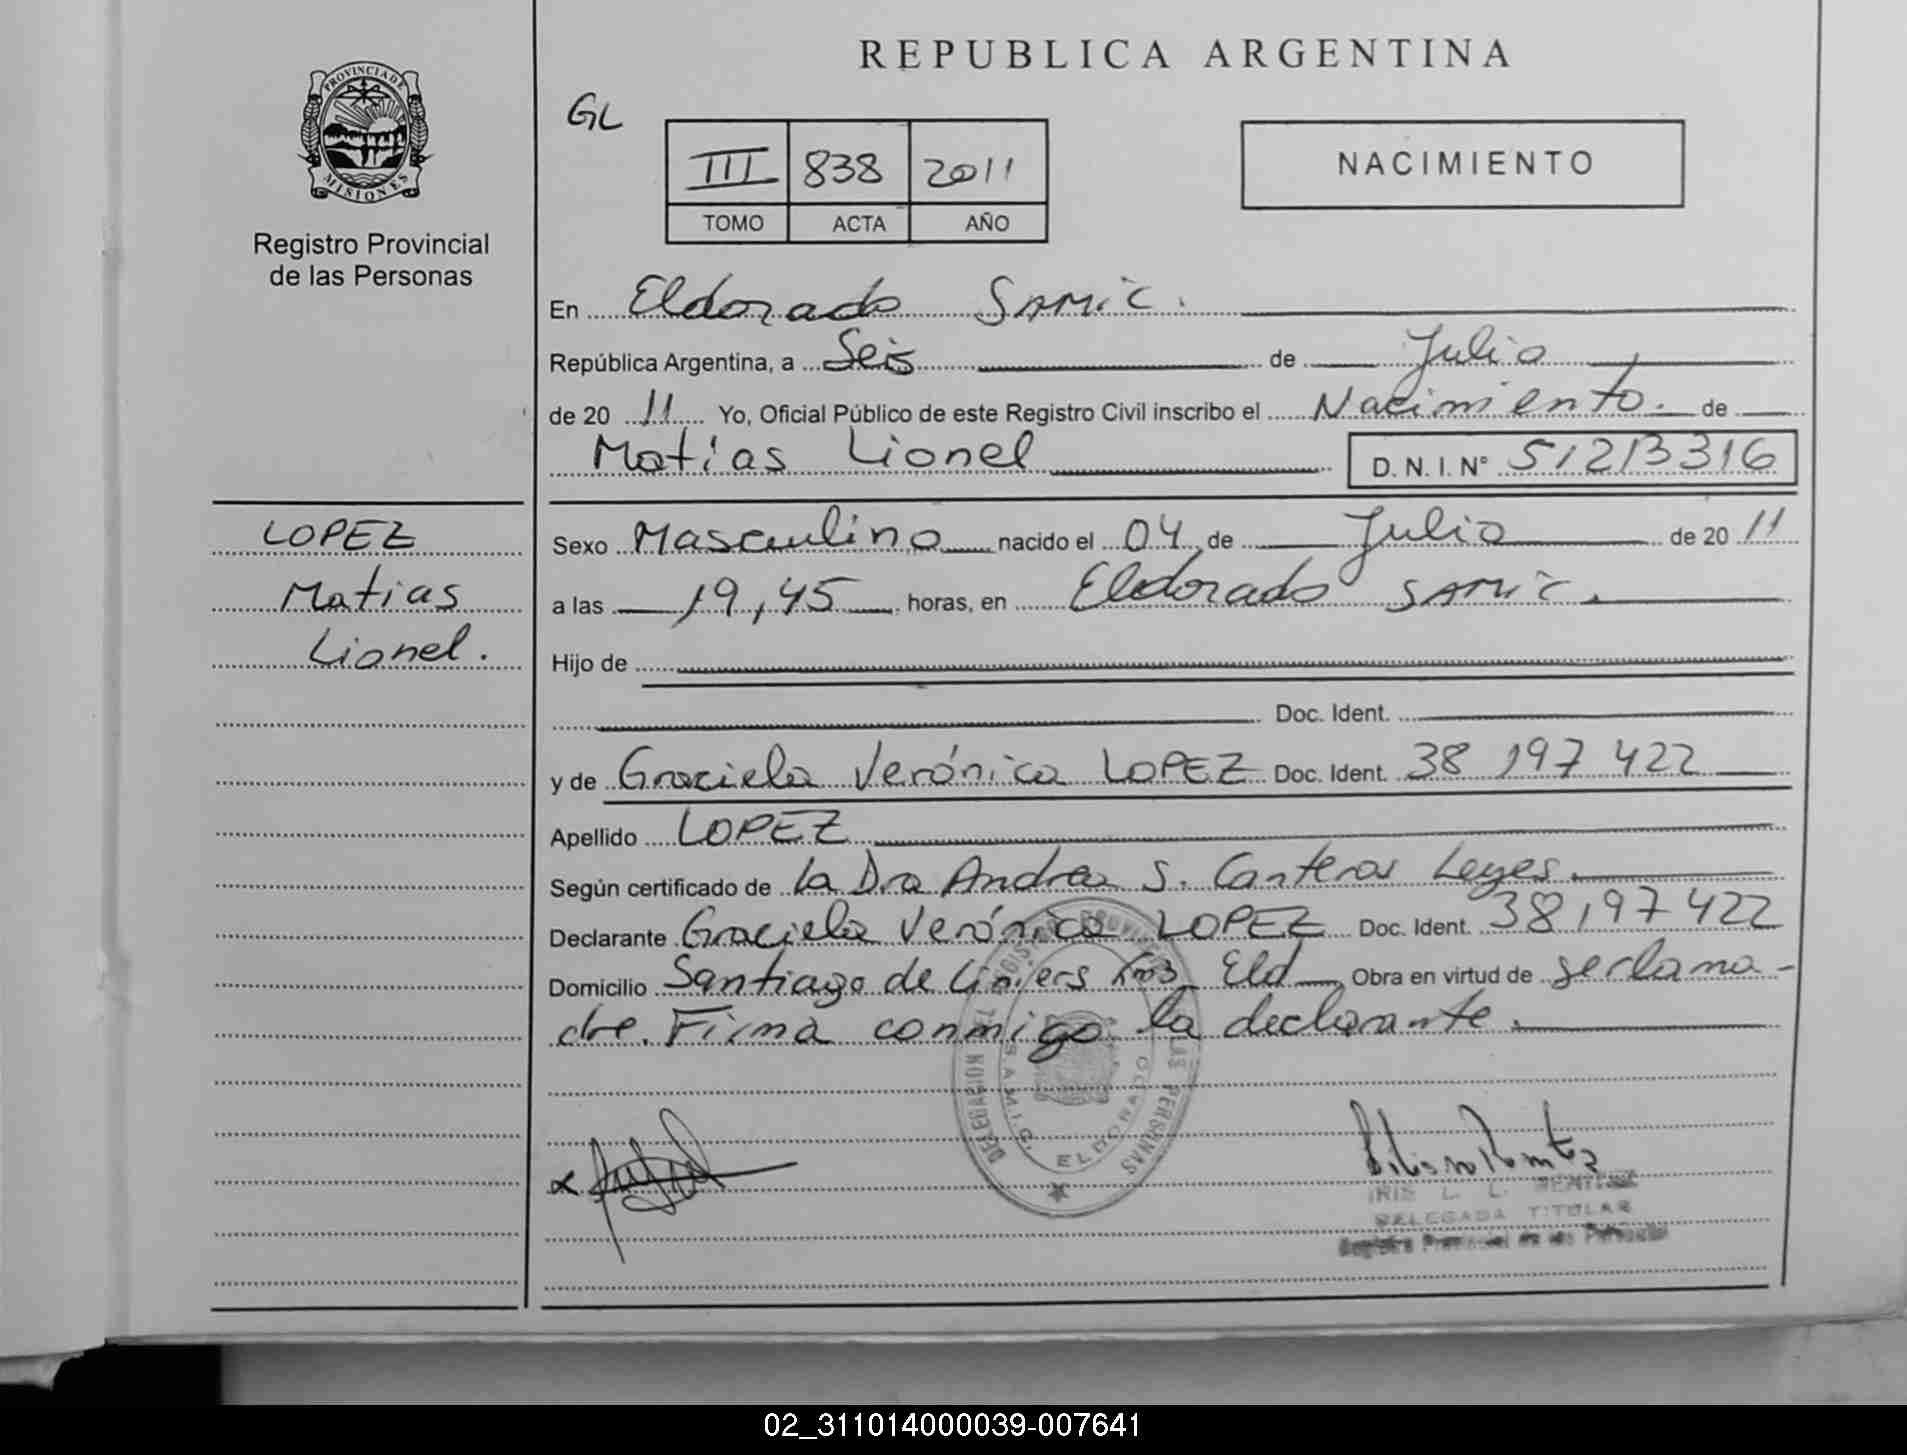 REPUBLICA ARGENTINA
PROVINCIA DE
MISIONES
Registro Provincial
de las Personas
GL
III 838 2011
TOMO ACTA AÑO
NACIMIENTO
En Eldorado SAMIC.
República Argentina, a Seis de Julio
de 20 11 Yo, Oficial Público de este Registro Civil inscribo el Nacimiento. de
Matías Lionel D. N. I. N° 51213316
LOPEZ
Matias
Lionel.
Sexo Masculino nacido el 04 de Julio de 20 11
a las 19,45 horas, en Eldorado SAMIC.
Hijo de
Doc. Ident.
y de Graciela Verónica LOPEZ Doc. Ident. 38 197 422
Apellido LOPEZ
Según certificado de la Dra Andrea S. Canteros Leyes.
Declarante Graciela Verónica LOPEZ Doc. Ident. 38197422
Domicilio Santiago de Liniers Km3 Eld Obra en virtud de ser la ma-
dre. Firma conmigo la declarante.
DELEGACION
LAS PERSONAS
S.A.M.I.C. ELDORADO
IRIS L. L.
DELEGADA TITULAR
Registro Provincial de las Personas
02_311014000039-007641